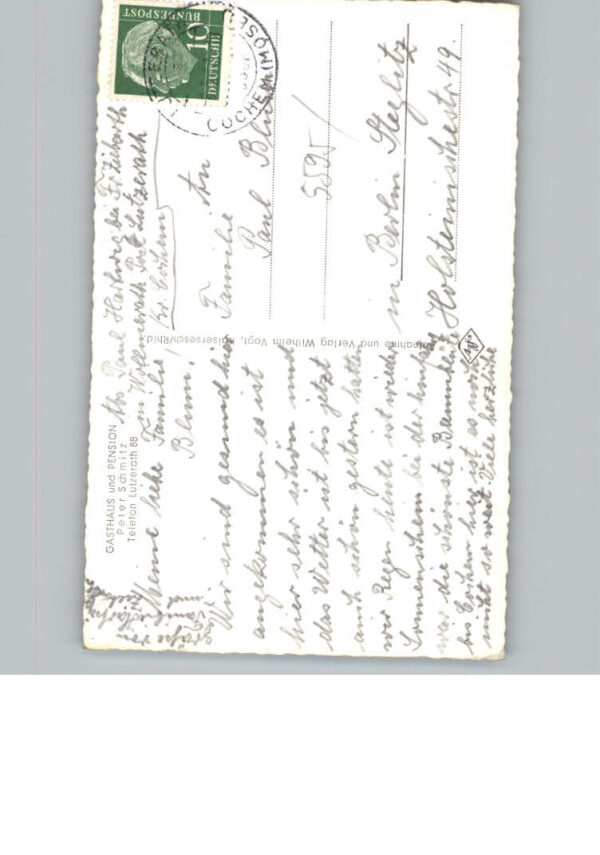 GASTHAUS und PENSION
Peter Schmitz
Telefon Lutzerath 88
Abs Paul Hartwig bei Fr.
in Post Lutzerath
Kr. Cochem
Meine liebe Familie
Blum!
Wir sind gesund hier
angekommen es ist
hier sehr schön und
das Wetter ist bis jetzt
auch schön gestern hatten
wir Regen heute ist wieder
Sonnenschein bei der
war die schönste Baumblüte
bis Cochem hier ist es noch
nicht so weit Viele herzliche
Grüße von
und
Aufnahme und Verlag Wilhelm Vogt, Kaisersesch/Rhld.
DEUTSCHE
BUNDESPOST
10
LUTZERATH
COCHEM (MOSEL)
An
Familie
Paul Blum
5595/
in Berlin Steglitz
Holsteinischestr 49.